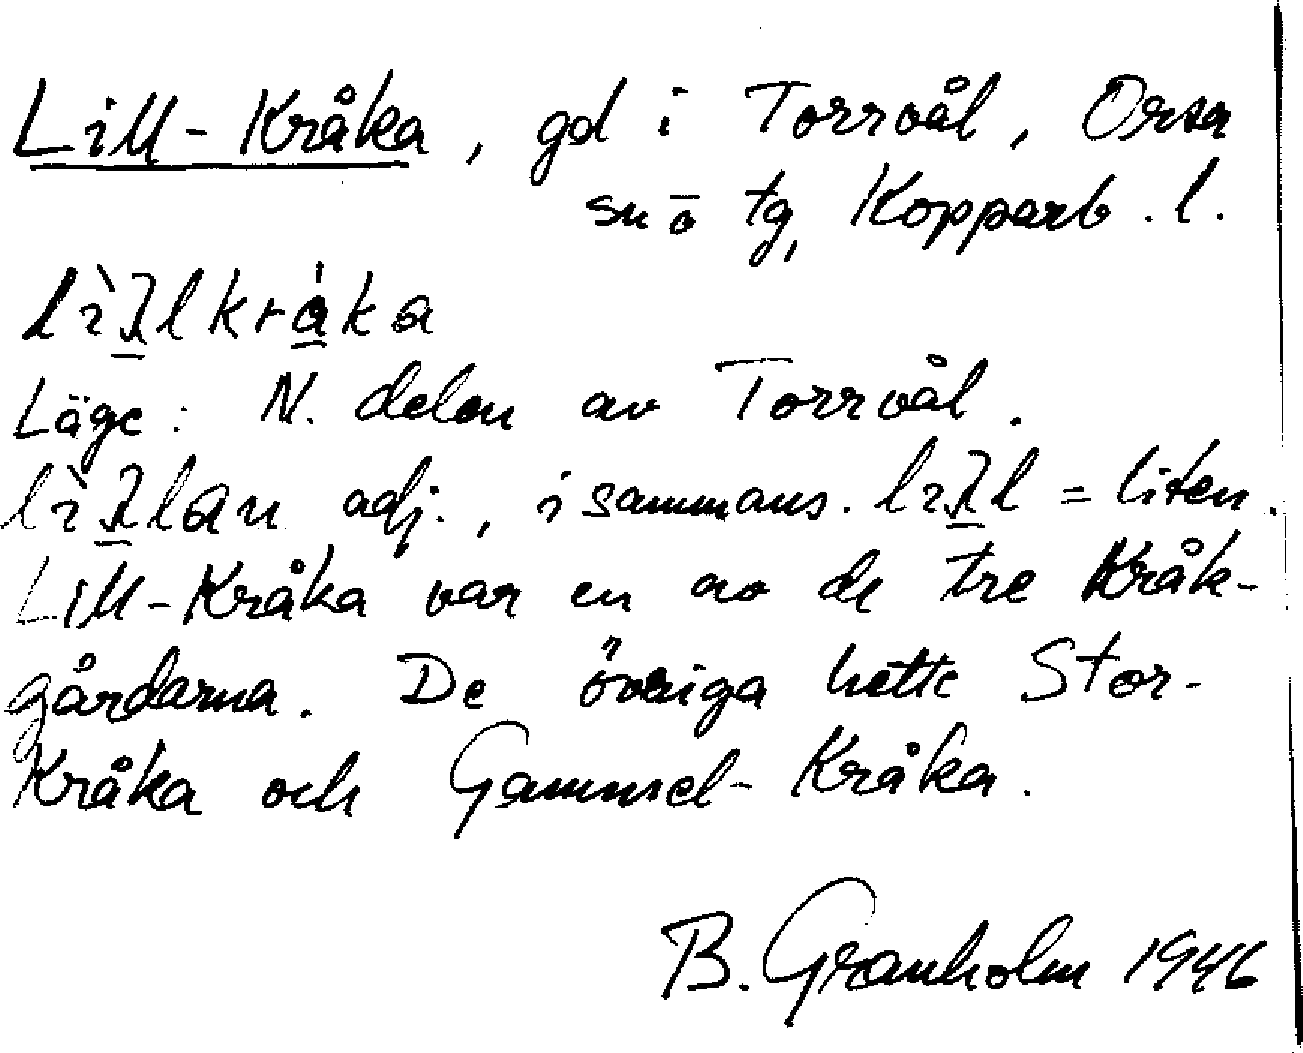 Lill-Kråka, gd i Torrvål, Orsa
sn o tg, Kopparb. l.
Läge: N. delen av Torrvål.
adj., i sammans. = liten.
Lill-Kråka var en av de tre Kråk-
gårdarna. De övriga hette Stor-
Kråka och Gammel-Kråka.
B. Granholm 1946